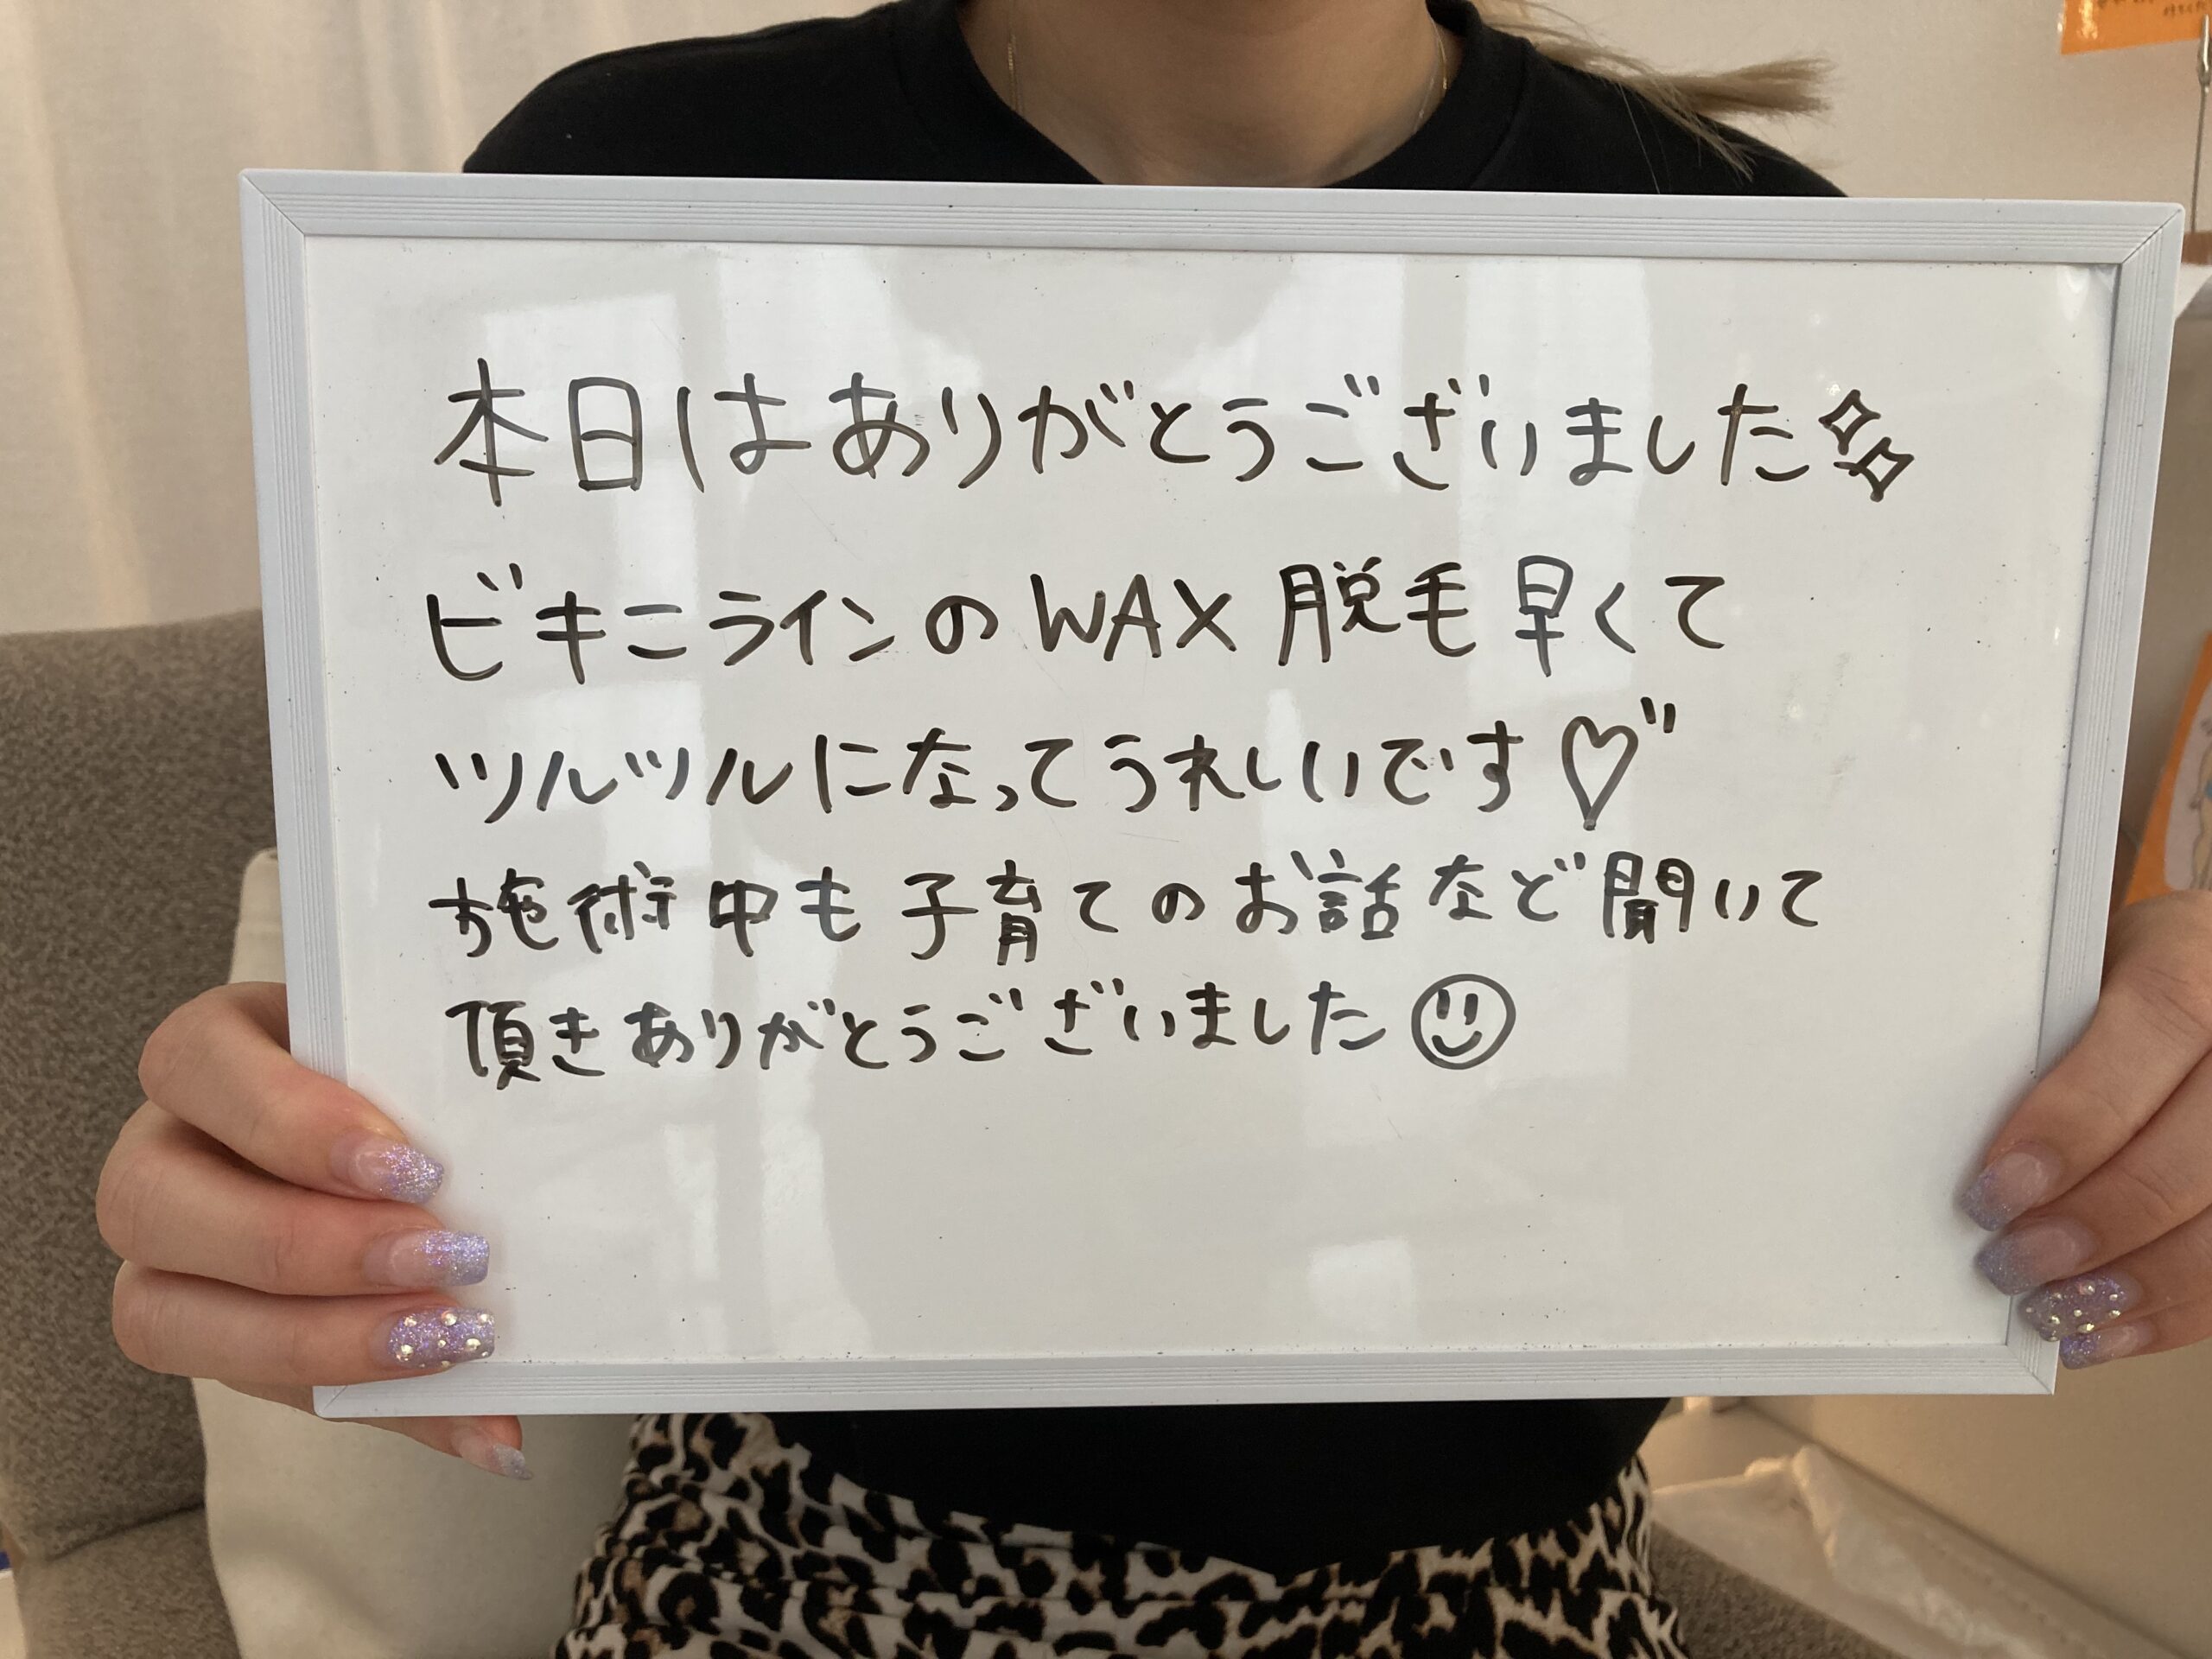 本日はありがとうございました
ビキニラインのWAX脱毛早くて
ツルツルになってうれしいです♡"
施術中も子育てのお話など聞いて
頂きありがとうございました